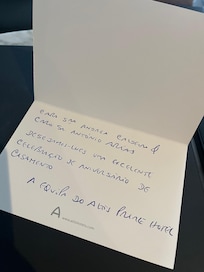 CARA SRA ANDREA CALDEIRA &
CARO SR ANTÓNIO
DESEJAMOS-LHES UM EXCELENTE
CELEBRAÇÃO DE ANIVERSÁRIO DE
CASAMENTO
A EQUIPA DO ALTIS PRIME HOTEL
A